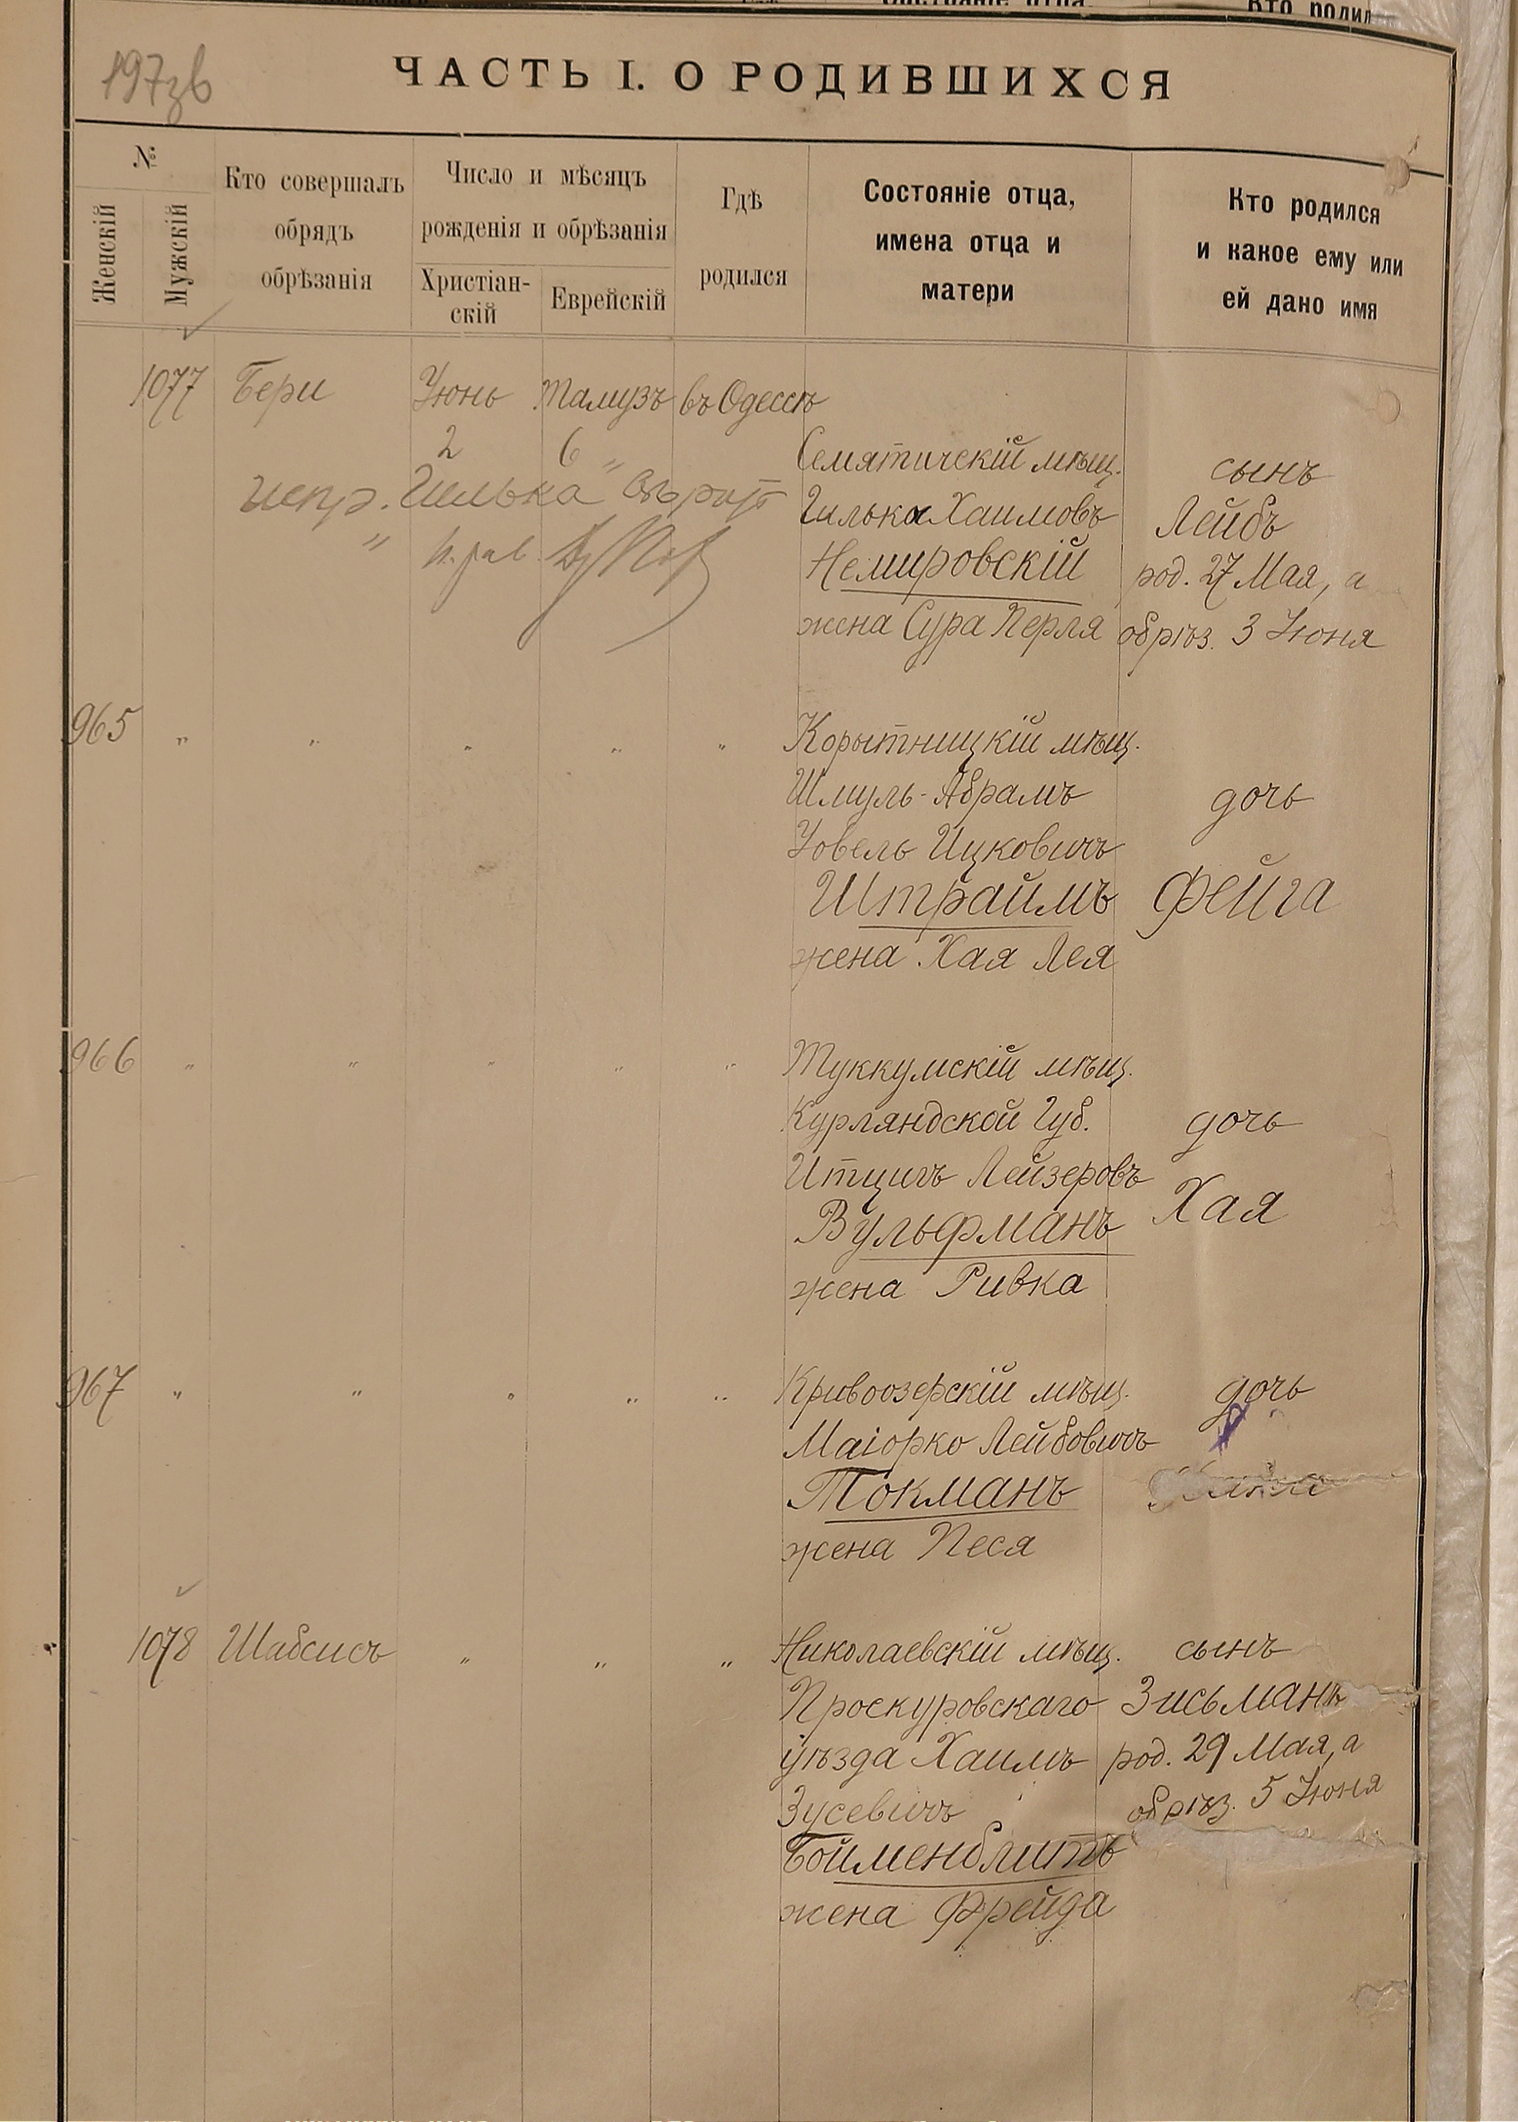 197зв
ЧАСТЬ I. О РОДИВШИХСЯ
№
Женскій
Мужскій
Кто совершалъ
обрядъ
обрѣзанія
Число и мѣсяцъ
рожденія и обрѣзанія
Христіан-
скій
Еврейскій
Гдѣ
родился
Состояніе отца,
имена отца и
матери
Кто родился
и какое ему или
ей дано имя
1077 Бери Іюнь Тамузъ въ Одессѣ
2 6
Семятичскій мѣщ. сынъ
испр. "Гилька"
Гилька Хаимовъ Лейбъ
Немировскій род. 27 Мая, а
жена Сура Перля обрѣз. 3 Іюня
965 " " " " " Корытницкій мѣщ.
Шмуль-Абрамъ дочь
Іовель Ицковичъ
Штраимъ Фейга
жена Хая Лея
966 " " " " " Туккумскій мѣщ.
Курляндской Губ. дочь
Итцигъ Лейзеровъ
Вульфманъ Хая
жена Ривка
967 " " " " " Кривоозерскій мѣщ. дочь
Маіорко Лейбовичъ
Токманъ
жена Песя
1078 Шабсисъ " " " Николаевскій мѣщ. сынъ
Проскуровскаго Зисьманъ
уѣзда Хаимъ род. 29 Мая, а
Зусевичъ обрѣз. 5 Іюня
Бойменблитъ
жена Фрейда